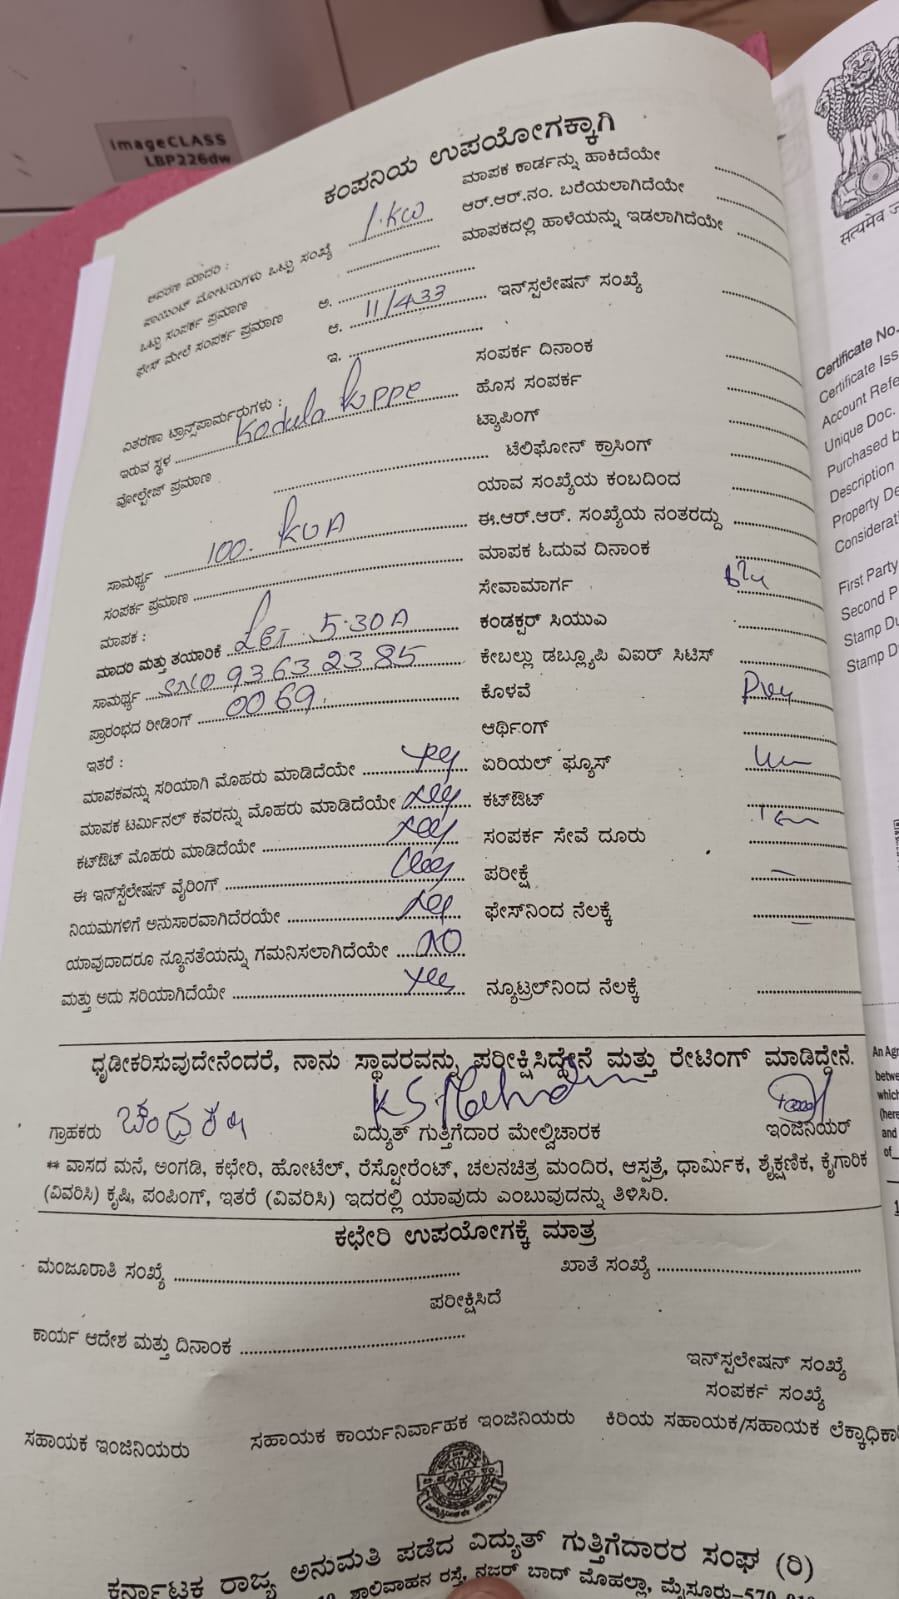 imageCLASS
LBP226dw
ಕಂಪನಿಯ ಉಪಯೋಗಕ್ಕಾಗಿ
ಆವರಣ ಮಾದರಿ :
ಪಾಯಿಂಟ್ ಮೋಟರುಗಳು ಒಟ್ಟು ಸಂಖ್ಯೆ 1.KW
ಒಟ್ಟು ಸಂಪರ್ಕ ಪ್ರಮಾಣ
ಫೇಸ್ ಮೇಲೆ ಸಂಪರ್ಕ ಪ್ರಮಾಣ ಅ.
ಆ. 11/433
ಇ.
ವಿತರಣಾ ಟ್ರಾನ್ಸ್‌ಪಾರ್ಮರುಗಳು :
ಇರುವ ಸ್ಥಳ Kodula Kuppe
ವೋಲ್ಟೇಜ್ ಪ್ರಮಾಣ
ಸಾಮರ್ಥ್ಯ 100. KVA
ಸಂಪರ್ಕ ಪ್ರಮಾಣ
ಮಾಪಕ :
ಮಾದರಿ ಮತ್ತು ತಯಾರಿಕೆ L&T 5-30A
ಸಾಮರ್ಥ್ಯ SNO 93632385
ಪ್ರಾರಂಭದ ರೀಡಿಂಗ್ 0069.
ಇತರೆ :
ಮಾಪಕವನ್ನು ಸರಿಯಾಗಿ ಮೊಹರು ಮಾಡಿದೆಯೇ yes
ಮಾಪಕ ಟರ್ಮಿನಲ್ ಕವರನ್ನು ಮೊಹರು ಮಾಡಿದೆಯೇ yes
ಕಟ್‌ಔಟ್ ಮೊಹರು ಮಾಡಿದೆಯೇ yes
ಈ ಇನ್‌ಸ್ಪಲೇಷನ್ ವೈರಿಂಗ್
ನಿಯಮಗಳಿಗೆ ಅನುಸಾರವಾಗಿದೆರಯೇ yes
ಯಾವುದಾದರೂ ನ್ಯೂನತೆಯನ್ನು ಗಮನಿಸಲಾಗಿದೆಯೇ NO
ಮತ್ತು ಅದು ಸರಿಯಾಗಿದೆಯೇ yes
ಮಾಪಕ ಕಾರ್ಡನ್ನು ಹಾಕಿದೆಯೇ
ಆರ್.ಆರ್.ನಂ. ಬರೆಯಲಾಗಿದೆಯೇ
ಮಾಪಕದಲ್ಲಿ ಹಾಳೆಯನ್ನು ಇಡಲಾಗಿದೆಯೇ
ಇನ್‌ಸ್ಪಲೇಷನ್ ಸಂಖ್ಯೆ
ಸಂಪರ್ಕ ದಿನಾಂಕ
ಹೊಸ ಸಂಪರ್ಕ
ಟ್ಯಾಪಿಂಗ್
ಟೆಲಿಫೋನ್ ಕ್ರಾಸಿಂಗ್
ಯಾವ ಸಂಖ್ಯೆಯ ಕಂಬದಿಂದ
ಈ.ಆರ್.ಆರ್. ಸಂಖ್ಯೆಯ ನಂತರದ್ದು
ಮಾಪಕ ಓದುವ ದಿನಾಂಕ
ಸೇವಾಮಾರ್ಗ
ಕಂಡಕ್ಟರ್ ಸಿಯುಎ
ಕೇಬಲ್ಲು ಡಬ್ಲ್ಯೂಪಿ ವಿಐರ್ ಸಿಟಿಸ್
ಕೊಳವೆ
ಆರ್ಥಿಂಗ್
ಏರಿಯಲ್ ಫ್ಯೂಸ್
ಕಟ್‌ಔಟ್
ಸಂಪರ್ಕ ಸೇವೆ ದೂರು
ಪರೀಕ್ಷೆ
ಫೇಸ್‌ನಿಂದ ನೆಲಕ್ಕೆ
ನ್ಯೂಟ್ರಲ್‌ನಿಂದ ನೆಲಕ್ಕೆ
ಧೃಡೀಕರಿಸುವುದೇನೆಂದರೆ, ನಾನು ಸ್ಥಾವರವನ್ನು ಪರೀಕ್ಷಿಸಿದ್ದೇನೆ ಮತ್ತು ರೇಟಿಂಗ್ ಮಾಡಿದ್ದೇನೆ.
ಗ್ರಾಹಕರು ವಿದ್ಯುತ್ ಗುತ್ತಿಗೆದಾರ ಮೇಲ್ವಿಚಾರಕ ಇಂಜಿನಿಯರ್
** ವಾಸದ ಮನೆ, ಅಂಗಡಿ, ಕಛೇರಿ, ಹೋಟೆಲ್, ರೆಸ್ಟೋರೆಂಟ್, ಚಲನಚಿತ್ರ ಮಂದಿರ, ಆಸ್ಪತ್ರೆ, ಧಾರ್ಮಿಕ, ಶೈಕ್ಷಣಿಕ, ಕೈಗಾರಿಕ
(ವಿವರಿಸಿ) ಕೃಷಿ, ಪಂಪಿಂಗ್, ಇತರೆ (ವಿವರಿಸಿ) ಇದರಲ್ಲಿ ಯಾವುದು ಎಂಬುವುದನ್ನು ತಿಳಿಸಿರಿ.
ಕಛೇರಿ ಉಪಯೋಗಕ್ಕೆ ಮಾತ್ರ
ಮಂಜೂರಾತಿ ಸಂಖ್ಯೆ ಖಾತೆ ಸಂಖ್ಯೆ
ಪರೀಕ್ಷಿಸಿದೆ
ಕಾರ್ಯ ಆದೇಶ ಮತ್ತು ದಿನಾಂಕ
ಇನ್‌ಸ್ಪಲೇಷನ್ ಸಂಖ್ಯೆ
ಸಂಪರ್ಕ ಸಂಖ್ಯೆ
ಸಹಾಯಕ ಇಂಜಿನಿಯರು ಸಹಾಯಕ ಕಾರ್ಯನಿರ್ವಾಹಕ ಇಂಜಿನಿಯರು ಕಿರಿಯ ಸಹಾಯಕ/ಸಹಾಯಕ ಲೆಕ್ಕಾಧಿಕಾ
ಕರ್ನಾಟಕ ರಾಜ್ಯ ಅನುಮತಿ ಪಡೆದ ವಿದ್ಯುತ್ ಗುತ್ತಿಗೆದಾರರ ಸಂಘ (ರಿ)
ಶಾಲಿವಾಹನ ರಸ್ತೆ, ನಜರ್ ಬಾದ್ ಮೊಹಲ್ಲಾ, ಮೈಸೂರು-570
सत्यमेव
Certificate No.
Certificate Iss
Account Refe
Unique Doc.
Purchased b
Description
Property De
Considerat
First Party
Second P
Stamp Du
Stamp D
An Agr
betwe
which
(here
and
of